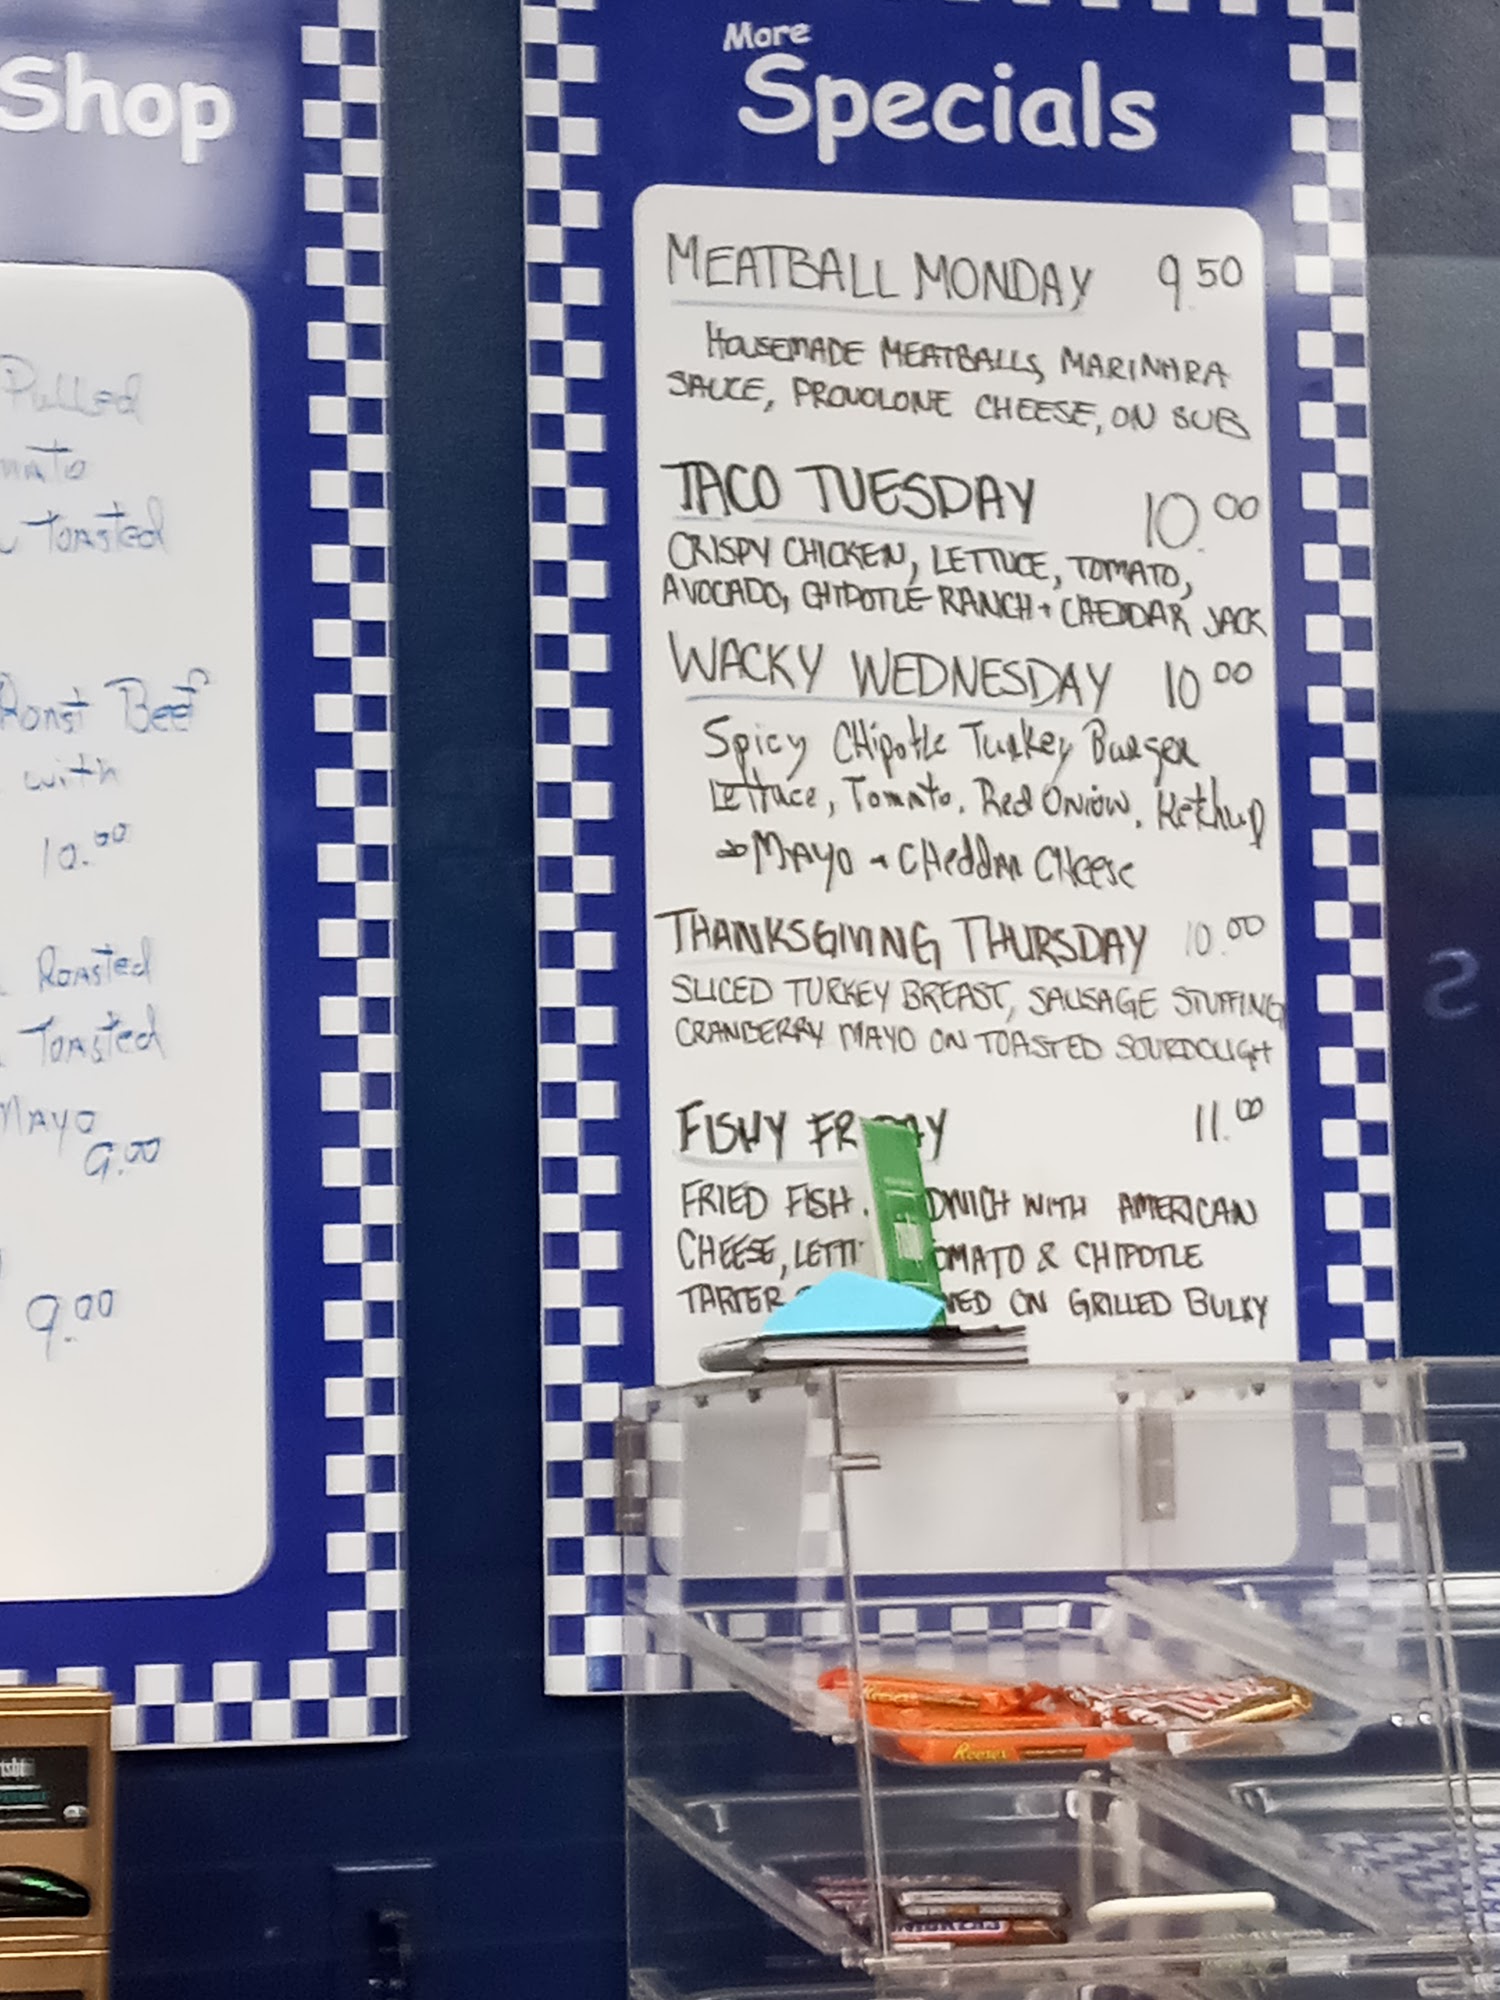 Shop
Pulled
Toasted
Roast Beef
with
10.00
Roasted
Toasted
Mayo
9.00
9.00
More
Specials
MEATBALL MONDAY 9.50
HOUSEMADE MEATBALLS, MARINARA
SAUCE, PROVOLONE CHEESE, ON SUB
TACO TUESDAY 10.00
CRISPY CHICKEN, LETTUCE, TOMATO,
AVOCADO, CHIPOTLE RANCH + CHEDDAR JACK
WACKY WEDNESDAY 10.00
Spicy CHipotle Turkey Burger
Lettuce, Tomato, Red Onion, Ketchup
MAYO + CHeddar CHeese
THANKSGIVING THURSDAY 10.00
SLICED TURKEY BREAST, SAUSAGE STUFFING
CRANBERRY MAYO ON TOASTED SOURDOUGH
FISHY FRIDAY 11.00
FRIED FISH WITH AMERICAN
CHEESE, & CHIPOTLE
TARTER ON GRILLED BULKY
Reese's
Reese's